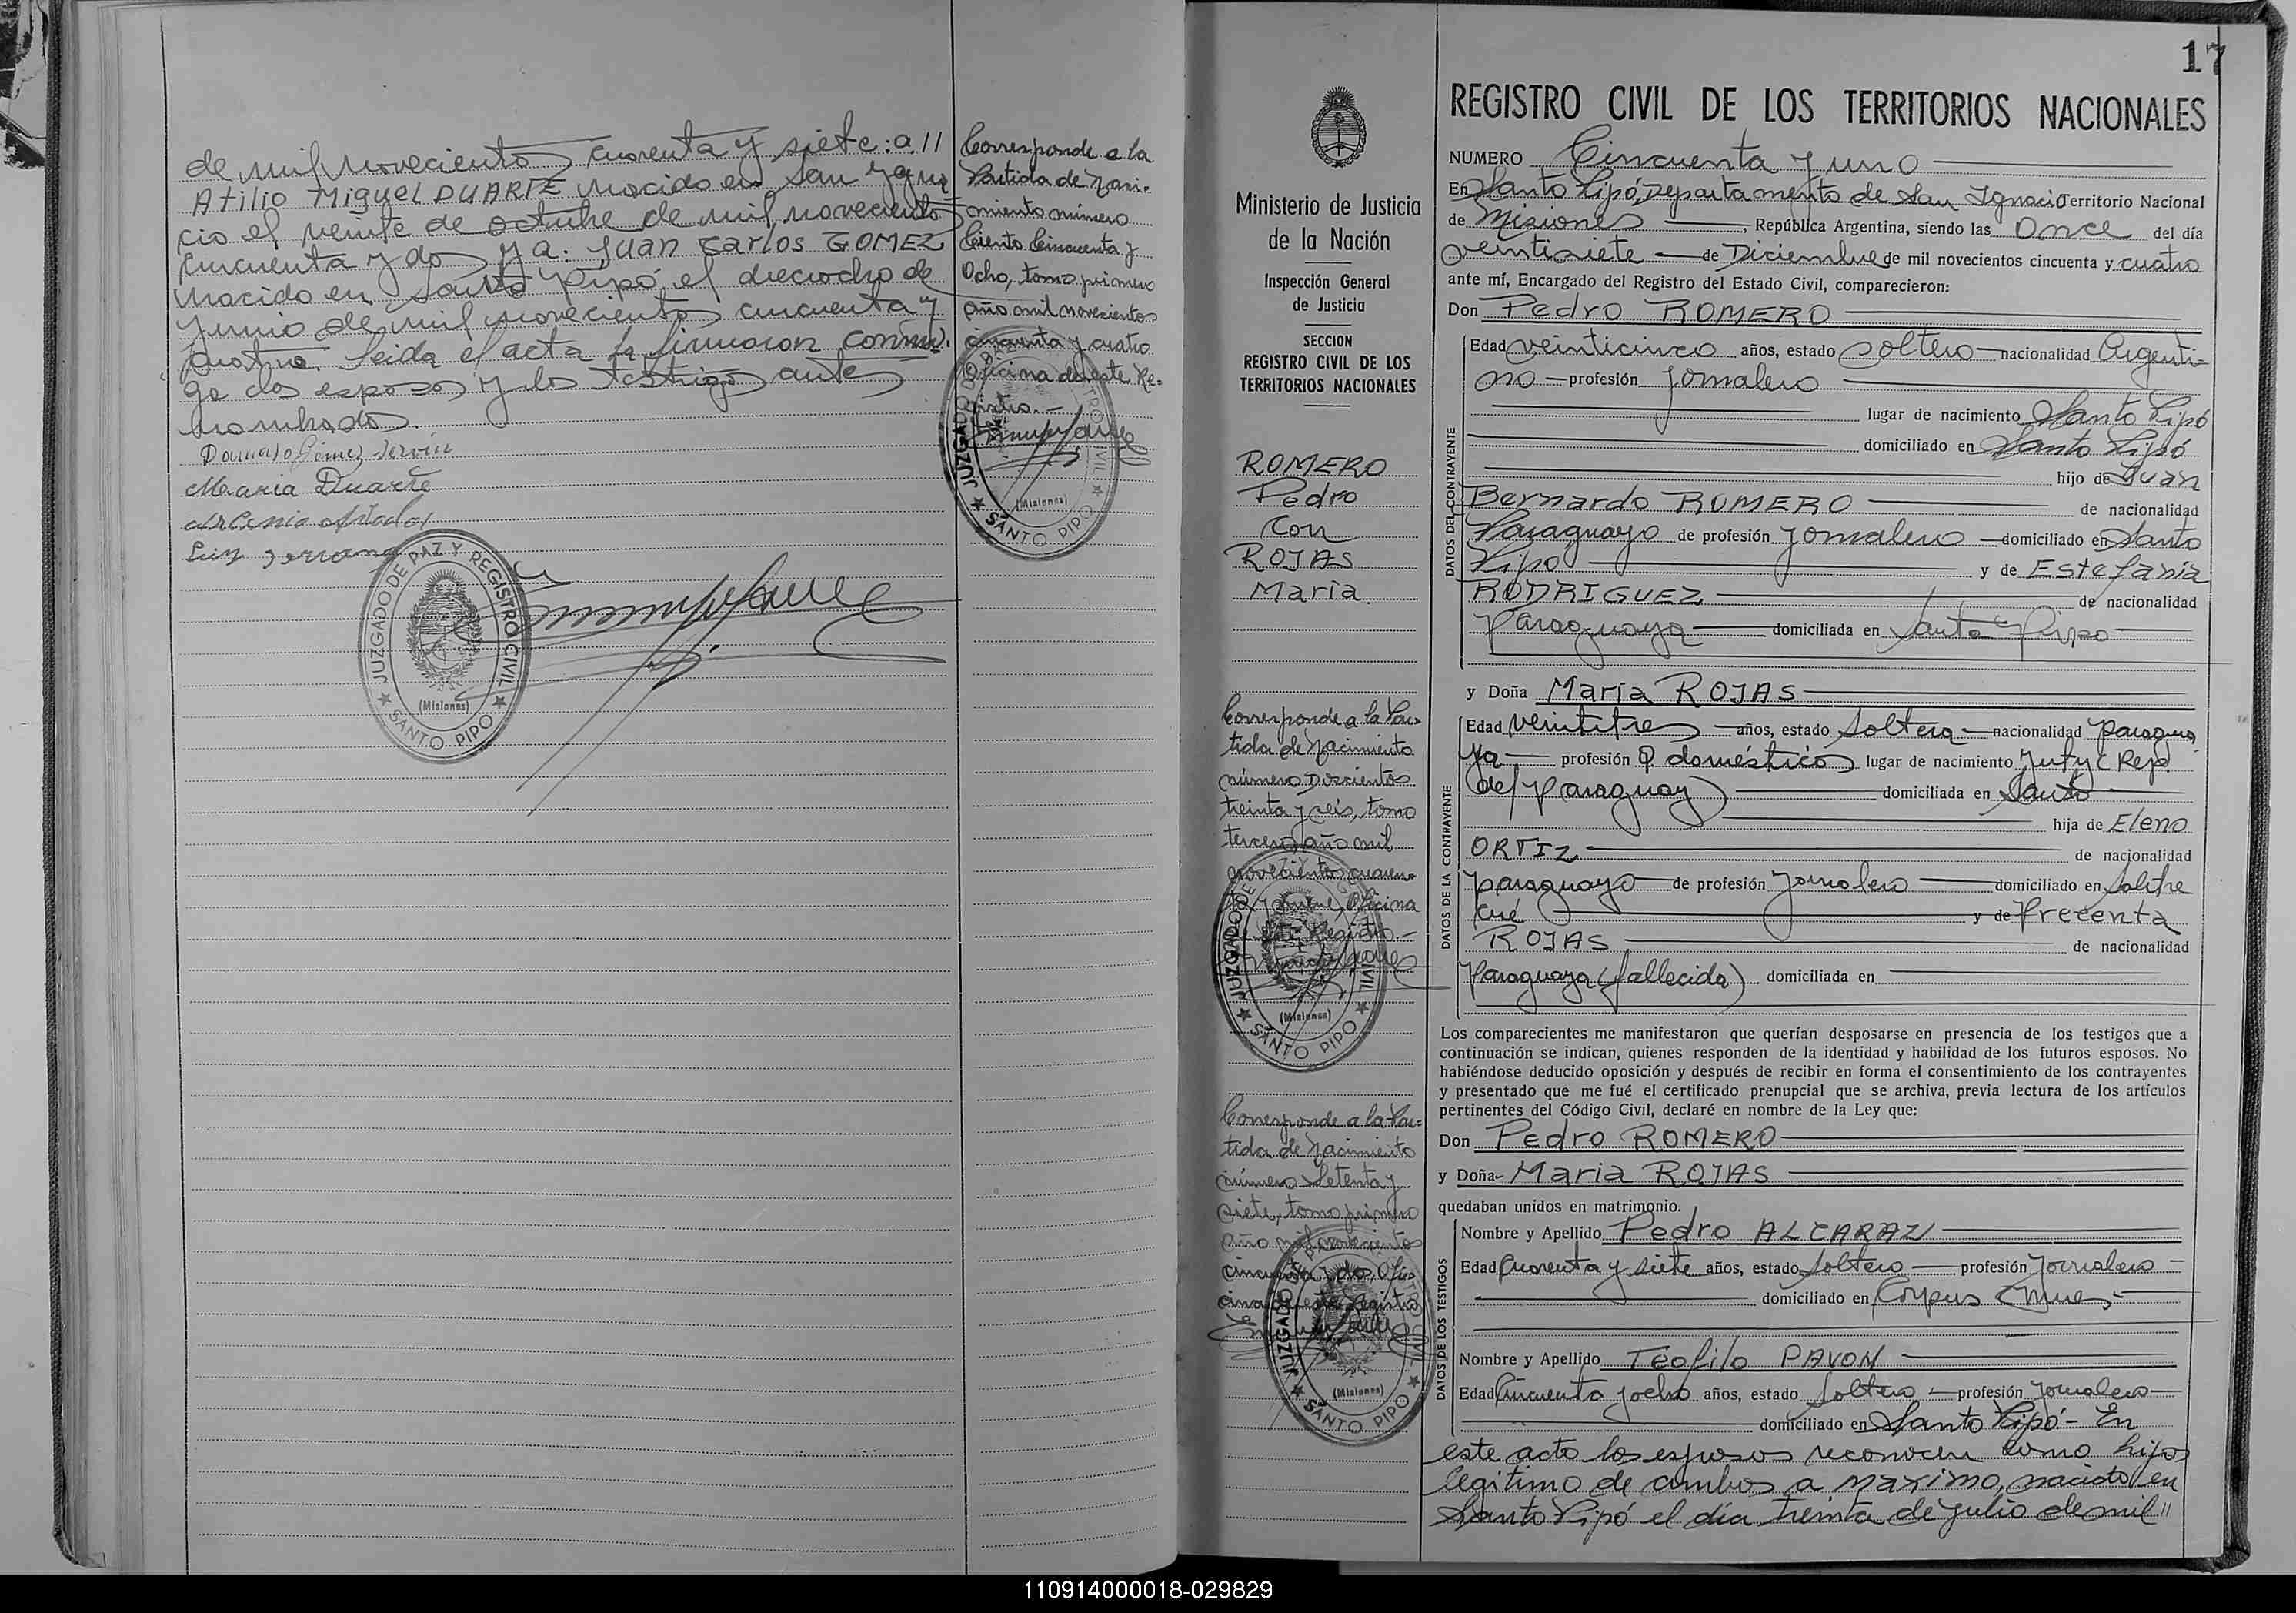 de mil novecientos cuarenta y siete: a //
Atilio Miguel DUARTE nacido en San Igna-
cio el veinte de octubre de mil novecientos
cincuenta y dos y a: Juan Carlos GOMEZ
nacido en Santo Pipó, el dieciocho de
junio de mil novecientos cincuenta y
cuatro. Leida el acta la firmaron conmi-
go los esposos y los testigos antes
nombrados.
Maria Duarte
Corresponde a la
Partida de Naci-
miento número
Ciento Cincuenta y
Ocho, tomo primero
año mil novecientos
cincuenta y cuatro
Oficina de este Re-
gistro.-
JUZGADO DE PAZ Y REGISTRO CIVIL
(Misiones)
SANTO PIPO
JUZGADO DE PAZ Y REGISTRO CIVIL
(Misiones)
SANTO PIPO
17
Ministerio de Justicia
de la Nación
Inspección General
de Justicia
SECCION
REGISTRO CIVIL DE LOS
TERRITORIOS NACIONALES
ROMERO
Pedro
Con
ROJAS
Maria
Corresponde a la Par-
tida de Nacimiento
número Doscientos
treinta y seis, tomo
tercero, año mil
novecientos cuaren-
Oficina
de este Registro.-
JUZGADO DE PAZ Y REGISTRO CIVIL
(Misiones)
SANTO PIPO
Corresponde a la Par-
tida de Nacimiento
número Setenta y
siete, tomo primero
año mil novecientos
cincuenta y dos, Ofi-
cina de este Registro
JUZGADO DE PAZ Y REGISTRO CIVIL
(Misiones)
SANTO PIPO
REGISTRO CIVIL DE LOS TERRITORIOS NACIONALES
NUMERO Cincuenta y uno
En Santo Pipó, Departamento de San Ignacio Territorio Nacional
de Misiones, República Argentina, siendo las Once del día
veintisiete de Diciembre de mil novecientos cincuenta y cuatro
ante mí, Encargado del Registro del Estado Civil, comparecieron:
Don Pedro ROMERO
DATOS DEL CONTRAYENTE
Edad veinticinco años, estado soltero nacionalidad Argenti-
no profesión Jornalero
lugar de nacimiento Santo Pipó
domiciliado en Santo Pipó
hijo de Juan
Bernardo ROMERO de nacionalidad
Paraguayo de profesión Jornalero domiciliado en Santo
Pipo y de Estefania
RODRIGUEZ de nacionalidad
Paraguaya domiciliada en Santo Pipo
y Doña Maria ROJAS
DATOS DE LA CONTRAYENTE
Edad veintitres años, estado Soltera nacionalidad paragua
ya profesión Q domésticos lugar de nacimiento Juty (Rep.
del Paraguay) domiciliada en Santo
hija de Eleno
ORTIZ de nacionalidad
paraguayo de profesión Jornalero domiciliado en Salitre
cué y de Precenta
ROJAS de nacionalidad
Paraguaya (fallecida) domiciliada en
Los comparecientes me manifestaron que querían desposarse en presencia de los testigos que a
continuación se indican, quienes responden de la identidad y habilidad de los futuros esposos. No
habiéndose deducido oposición y después de recibir en forma el consentimiento de los contrayentes
y presentado que me fué el certificado prenupcial que se archiva, previa lectura de los artículos
pertinentes del Código Civil, declaré en nombre de la Ley que:
Don Pedro ROMERO
y Doña Maria ROJAS
quedaban unidos en matrimonio.
DATOS DE LOS TESTIGOS
Nombre y Apellido Pedro ALCARAZ
Edad Cuarenta y siete años, estado Soltero profesión Jornalero
domiciliado en Corpus
Nombre y Apellido Teofilo PAVON
Edad Cincuenta y ocho años, estado Soltero profesión Jornalero
domiciliado en Santo Pipó- En
este acto los esposos reconocen como hijos
legitimo de ambos a Maximo, nacido en
Santo Pipó el día treinta de julio de mil //
110914000018-029829